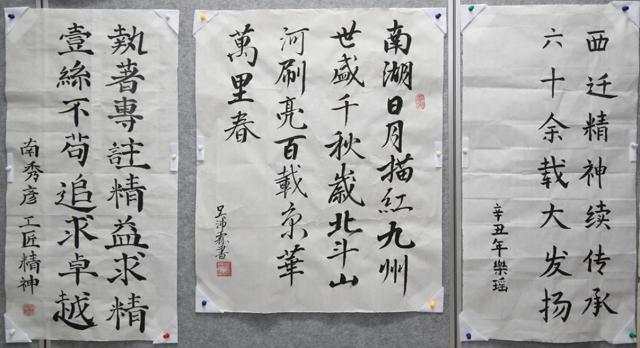 執著專註精益求精
壹絲不苟追求卓越
南秀彦 工匠精神
南湖日月描紅九州
世盛千秋歲北斗山
河刷亮百載京華
萬里春
西迁精神续传承
六十余载大发扬
辛丑年樂瑶